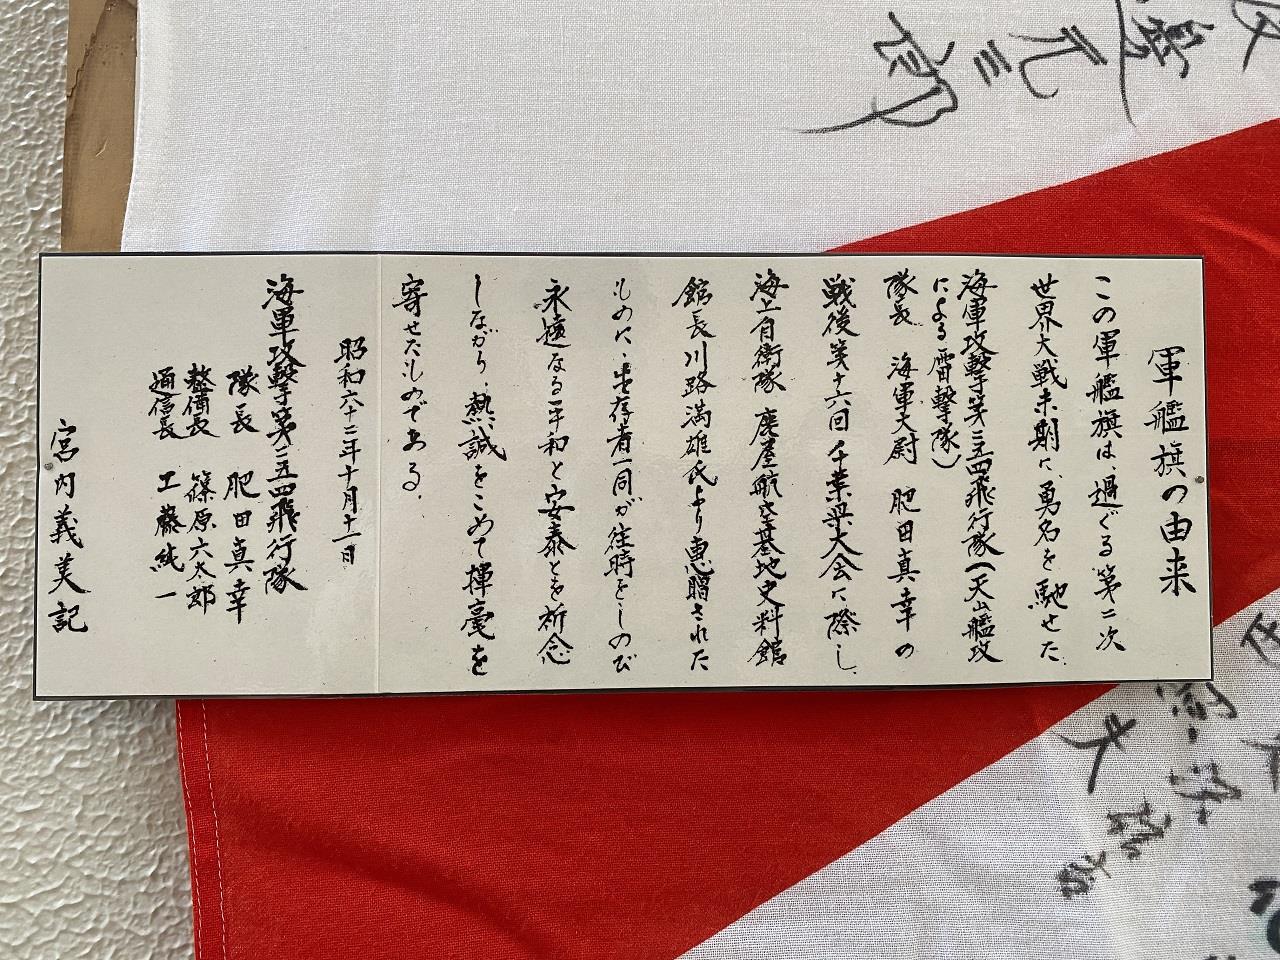 軍艦旗の由来
この軍艦旗は、過ぐる第二次
世界大戦末期に、勇名を馳せた、
海軍攻撃第二五四飛行隊(天山艦攻
による雷撃隊)
隊長 海軍大尉 肥田真幸の
戦後第十六回千葉県大会に際し、
海上自衛隊鹿屋航空基地史料館
館長川路満雄氏より恵贈された
ものに、生存者一同が往時をしのび
永遠なる平和と安泰とを祈念
しながら、熱誠をこめて揮毫を
寄せたものである。
昭和六十二年十月十一日
海軍攻撃第二五四飛行隊
隊長 肥田真幸
整備長 篠原六太郎
通信長 工藤純一
宮内義美記